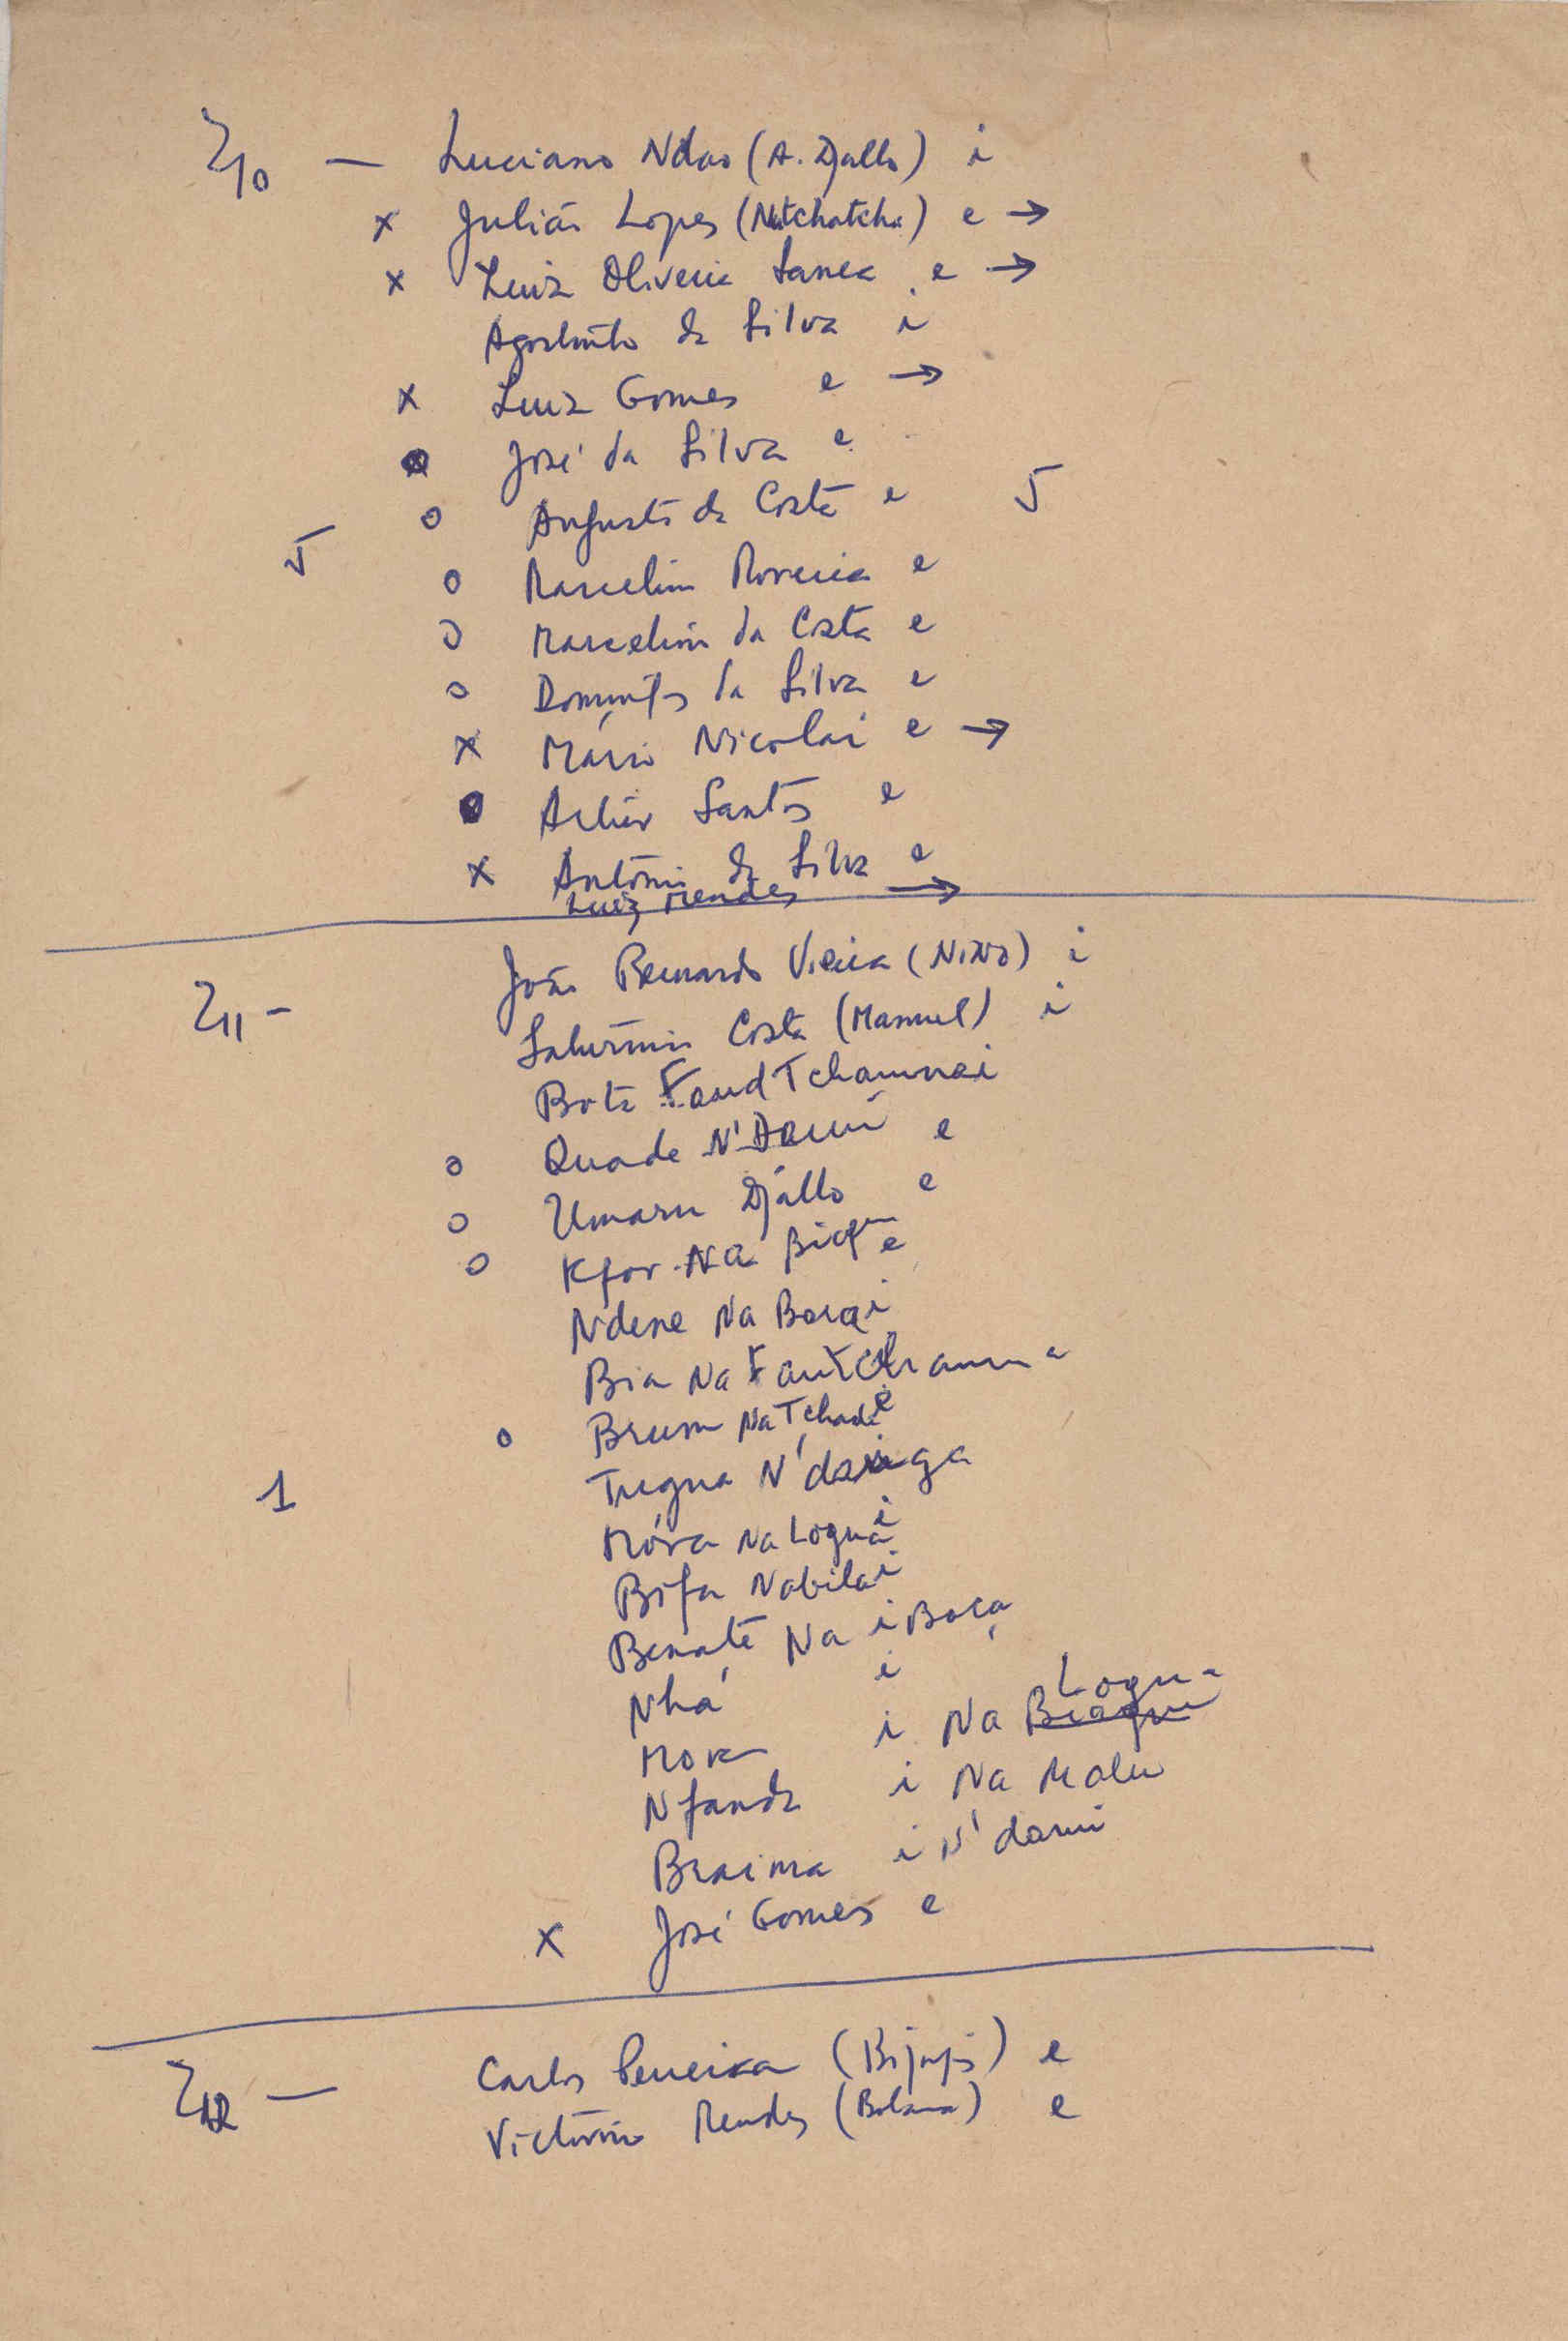 Z10 — Luciano Ndao (A. Djallo) i
x Julião Lopes (Natchatcha) e →
x Luiz Oliveira Sanca e →
Agostinho da Silva i
x Luiz Gomes e →
José da Silva e
o Augusto da Costa e 5
5
o Marcelino Moreira e
o Marcelino da Costa e
o Domingos da Silva e
x Mário Nicolai e →
Artur Santos e
x António da Silva e
Luiz Mendes →
Z11 — João Bernardo Vieira (NiNo) i
Saturnino Costa (Manuel) i
Bota Fand Tchamna i
o Quade N'Dami e
o Umaru Djállo e
o Kfor Na e
Ndene Na Borq i
Bia Na
o Brum Na Tchade e
1 Tugna
Móra Na Logna i
Bifa Nabila i
Benate Na i Boca
Nhá i
Mora i Na Logna
Nfanda i Na Malu
Braima i N'dami
x José Gomes e
Z12 — Carlos Pereira (Bijagós) e
Victorino Mendes (Bolama) e